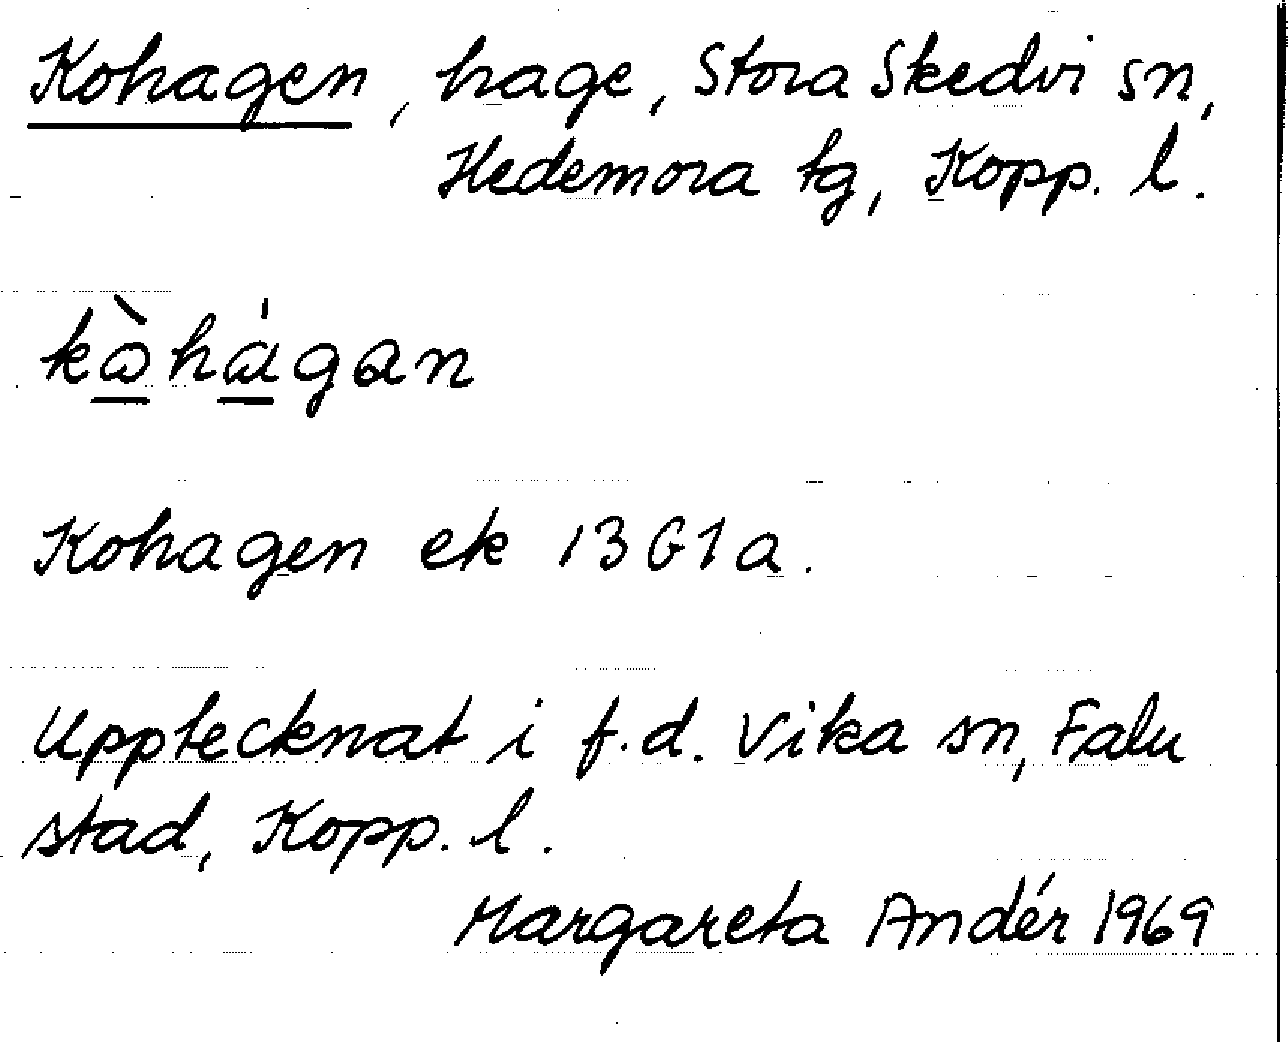 Kohagen, hage, Stora Skedvi sn,
Hedemora tg, Kopp. l.
kòhàgan
Kohagen ek 13G1a.
Upptecknat i f.d. Vika sn, Falu
stad, Kopp. l.
Margareta Andér 1969